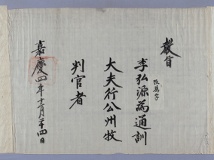 教旨
李弘源爲通訓
大夫行公州牧
判官者
嘉慶四年十二月二十四日